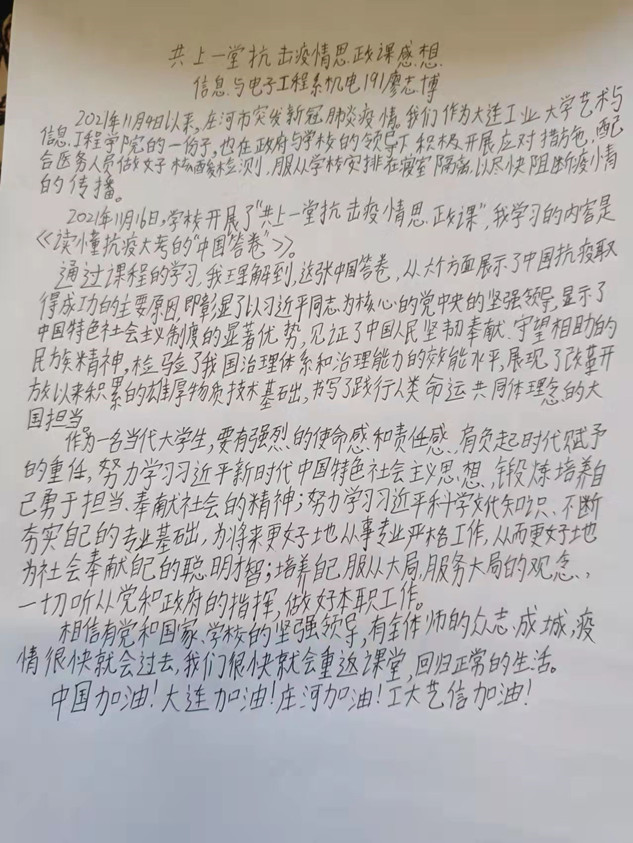 共上一堂抗击疫情思政课感想
信息与电子工程系机电191廖志博
2021年11月4日以来,庄河市突发新冠肺炎疫情。我们作为大连工业大学艺术与
信息工程学院的一份子,也在政府与学校的领导下积极开展应对措施,配
合医务人员做好核酸检测,服从学校安排在寝室隔离,以尽快阻断疫情
的传播。
2021年11月16日,学校开展了“共上一堂抗击疫情思政课”,我学习的内容是
《读懂抗疫大考的“中国答卷”》。
通过课程的学习,我理解到,这张中国答卷,从六个方面展示了中国抗疫取
得成功的主要原因,即彰显了以习近平同志为核心的党中央的坚强领导,显示了
中国特色社会主义制度的显著优势,见证了中国人民坚韧奉献、守望相助的
民族精神,检验了我国治理体系和治理能力的效能水平,展现了改革开
放以来积累的雄厚物质技术基础,书写了践行人类命运共同体理念的大
国担当
作为一名当代大学生,要有强烈的使命感和责任感、肩负起时代赋予
的重任,努力学习习近平新时代中国特色社会主义思想、锻炼培养自
己勇于担当、奉献社会的精神;努力学习习近平科学文化知识、不断
夯实自己的专业基础,为将来更好地从事专业严格工作,从而更好地
为社会奉献自己的聪明才智;培养自己服从大局,服务大局的观念、
一切听从党和政府的指挥,做好本职工作。
相信有党和国家、学校的坚强领导,有全体师的众志成城,疫
情很快就会过去,我们很快就会重返课堂,回归正常的生活。
中国加油!大连加油!庄河加油!工大艺信加油!